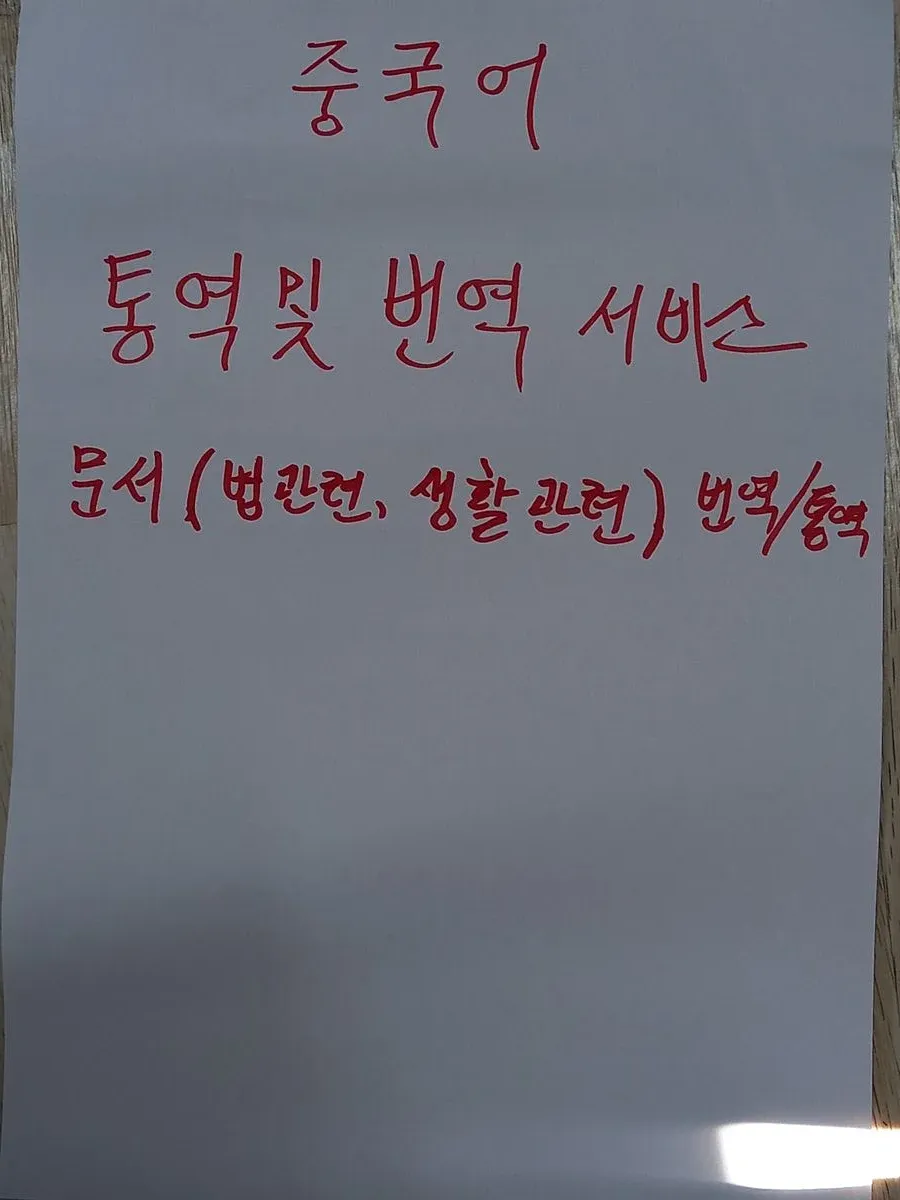 중국어
통역 및 번역 서비스
문서 (법관련, 생활관련) 번역/통역